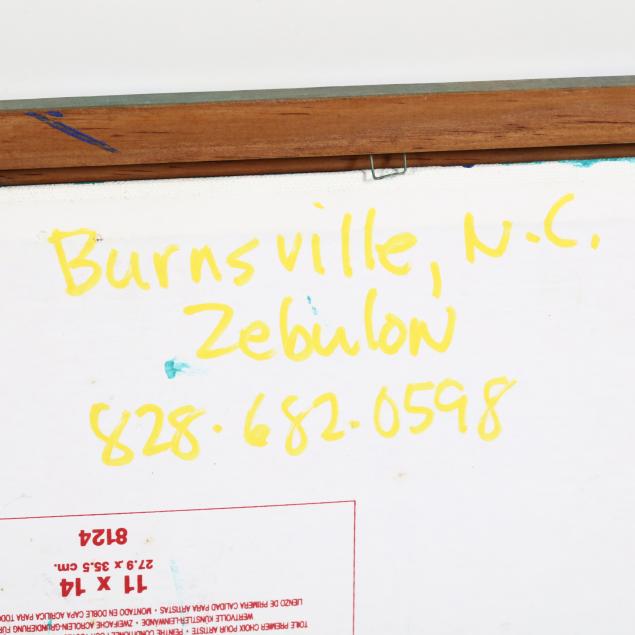 Burnsville, N.C.
Zebulon
828.682.0598
8124
27.9 x 35.5 cm.
11 x 14
LIENZO DE PRIMERA CALIDAD PARA ARTISTAS • MONTADO EN DOBLE CAPA ACRILICA PARA TODO
WERTVOLLE KÜNSTLER-LEINWANDE • ZWEIFACHE ACROLEIN-GRUNDIERUNG
TOILE PREMIER CHOIX POUR ARTISTE • PEINTRE